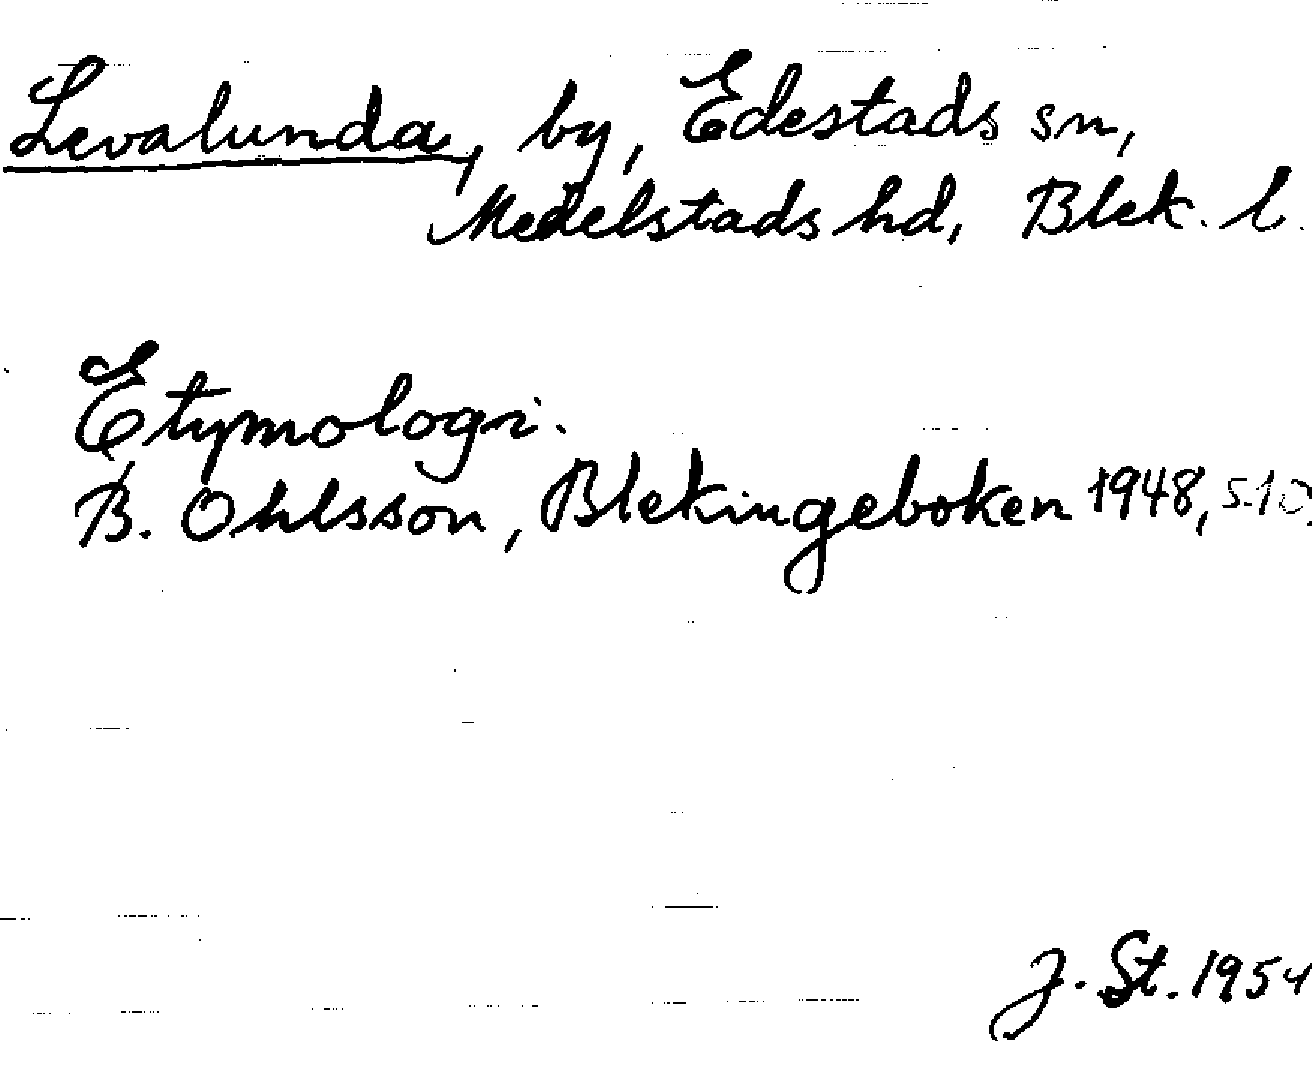 Levalunda, by, Edestads sn,
Medelstads hd, Blek. l.
Etymologi.
B. Ohlsson, Blekingeboken 1948, s. 10.
J. St. 1954